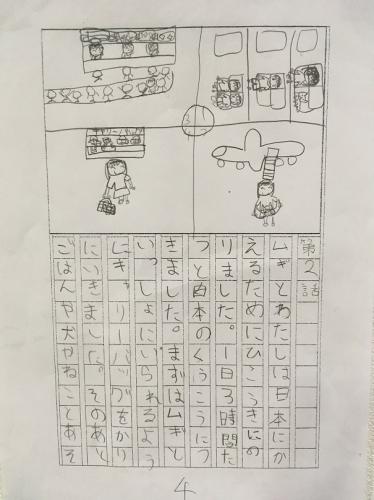 第2話
ムギとわたしは日本にか
えるためにひこうきにの
りました。1日3時間た
つと日本のくうこうにつ
きました。まずはムギと
いっしょにいられるよう
にキャリーバッグをかり
にいきました。そのあと
ごはんや犬やねことあそ
4